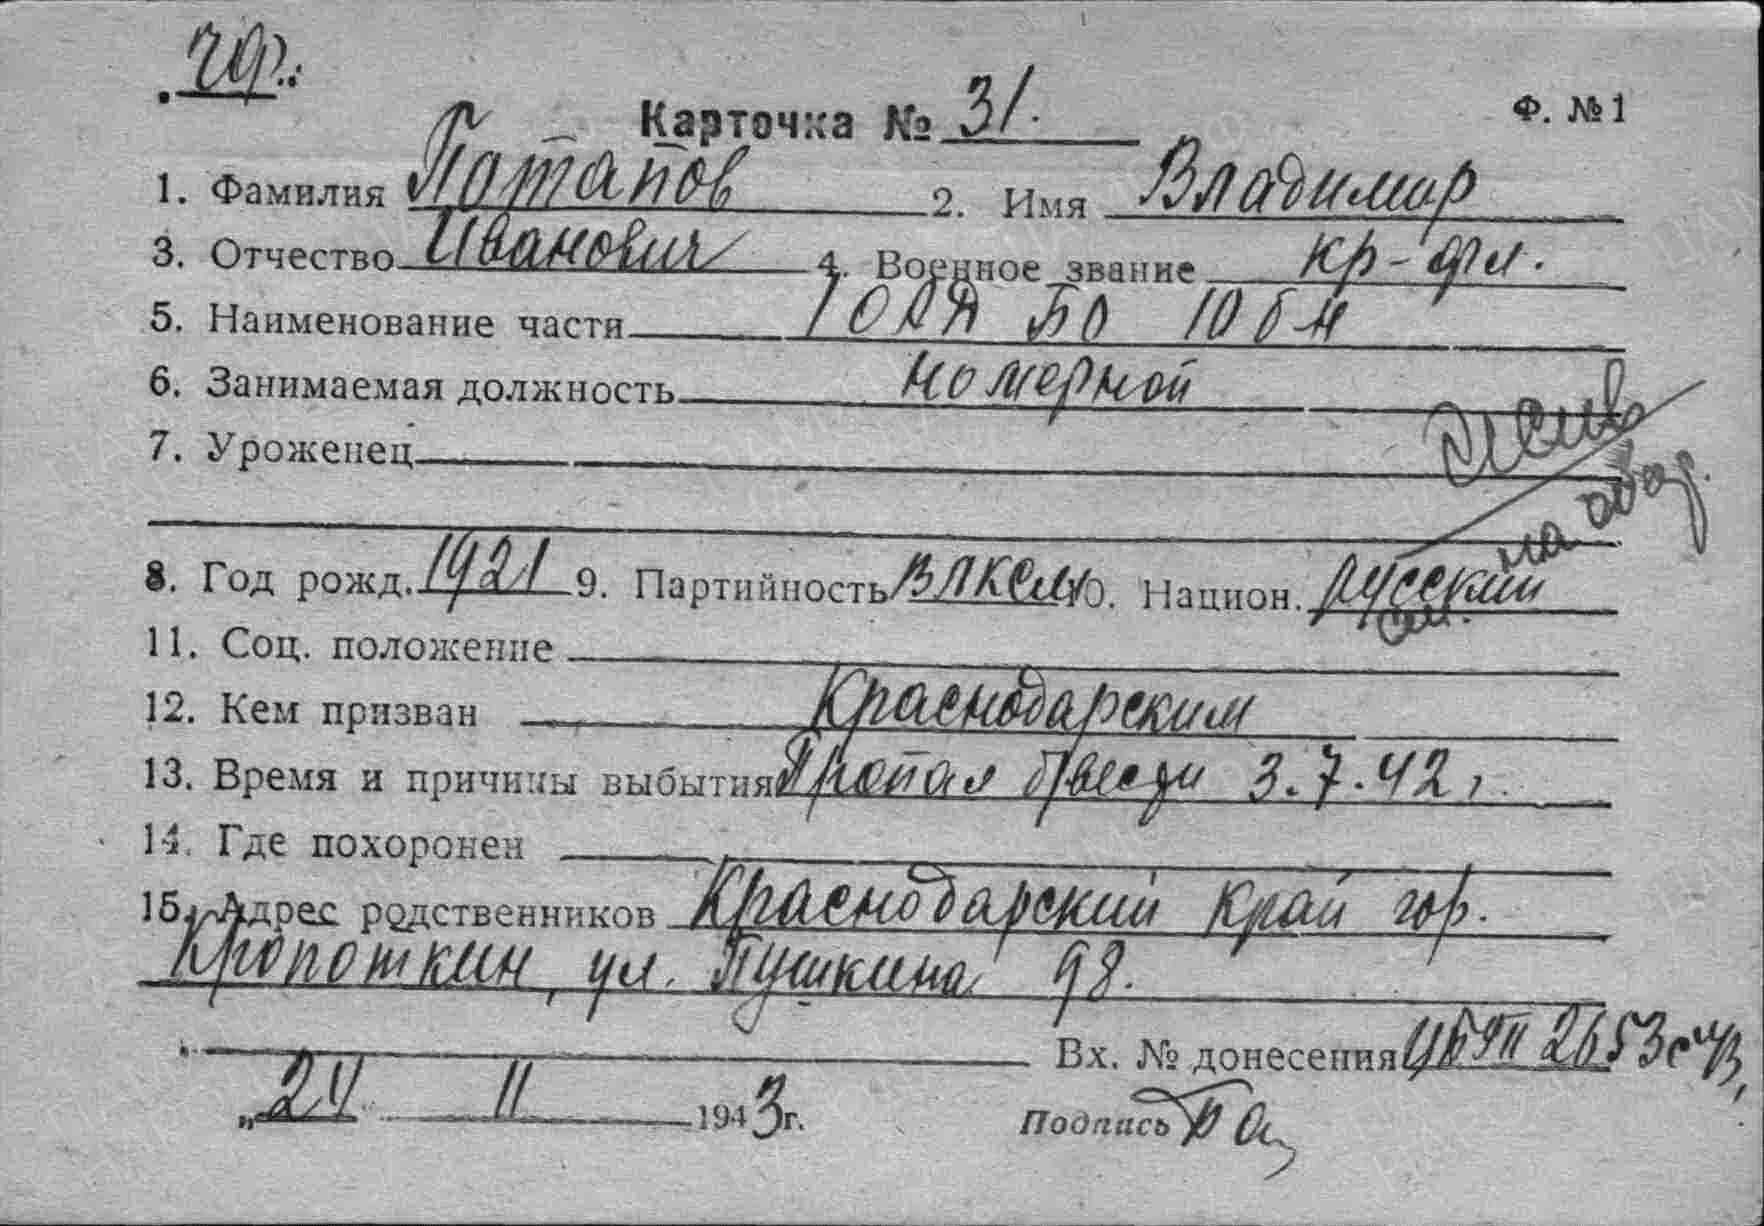 ЧФ.
Карточка № 31.
Ф. № 1
1. Фамилия Потапов 2. Имя Владимир
3. Отчество Иванович 4. Военное звание кр-фл.
5. Наименование части БО
6. Занимаемая должность номерной
7. Уроженец
8. Год рожд. 1921 9. Партийность ВЛКСМ 10. Национ. русский
см. на обор.
11. Соц. положение
12. Кем призван Краснодарским
13. Время и причины выбытия Пропал б/вести 3.7.42 г.
14. Где похоронен
15. Адрес родственников Краснодарский край гор.
Кропоткин, ул. Пушкина 98.
Вх. № донесения 2653
„24 11 1943 г.
Подпись